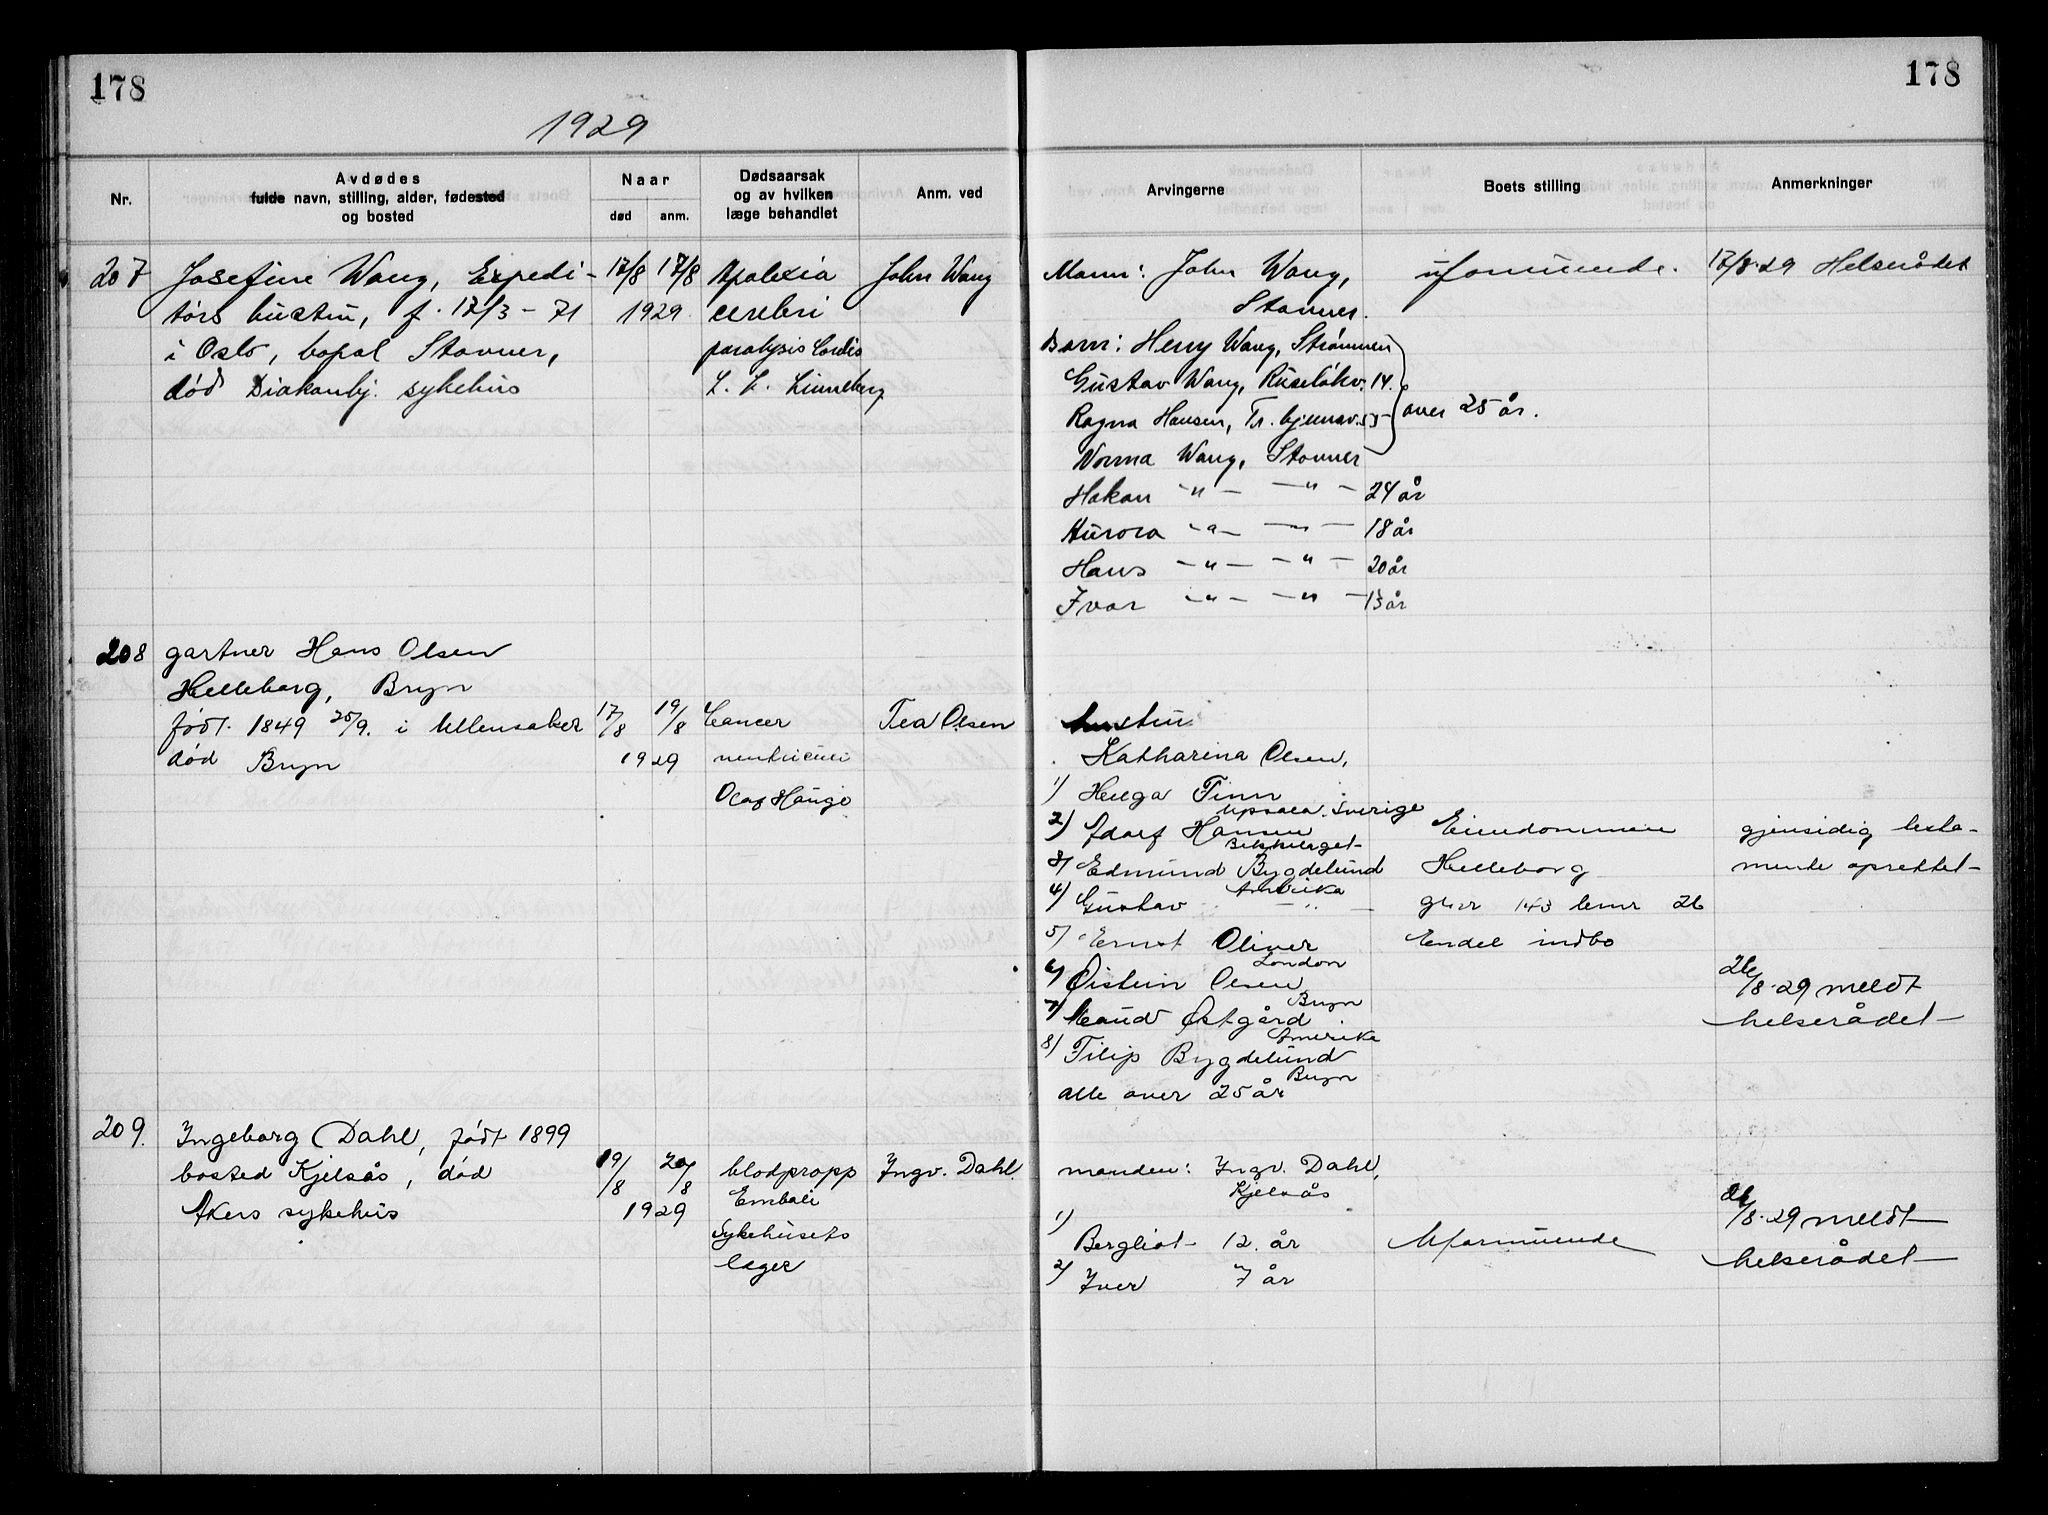 178
178
1929
Nr.
Avdødes
fulde navn, stilling, alder, fødested
og bosted
Naar
død
anm.
Dødsaarsak
og av hvilken
læge behandlet
Anm. ved
Arvingerne
Boets stilling
Anmerkninger
207
Josefine Wang, Expedi-
tørs hustru, f. 17/3 - 71
i Oslo, bopæl Stovner,
død Diakonhj. sykehus
17/8 17/8
1929
Apolexia
cerebri
paralysis Cordis
L. L. Linneberg
John Wang
Mann: John Wang,
Stovner.
Barn: Henry Wang, Strømmen
Gustav Wang, Ruseløkv. 14.
Ragna Hansen, Tr. hjemsv. 53
over 25 år.
Norma Wang, Stovner
Håkon -"- -"- 24 år
Aurora -"- -"- 18 år
Hans -"- -"- 20 år
Ivar -"- -"- 13 år
uformuende.
17/8-29 Helserådet
208
gartner Hans Olsen
Helleborg, Bryn
født 1849 25/9. i Ullensaker
død Bryn
17/8 19/8
1929
Cancer
ventriculi
Olaf Hauge
Tea Olsen
hustru
Katharina Olsen,
1) Helga Finn
Upsala. Sverige
2) Adolf Hansen
Bekkelaget
3) Edmund Bygdelund
Amerika
4) Gustav -"-
5) Ernst Oliver
London
6) Øistein Olsen
Bryn
7) Maud Østgård
Amerika
8) Filip Bygdelund
Bryn
alle over 25 år
Eiendommen
Helleborg
gnr 143 bnr 26
Endel indbo
gjensidig testa-
mente oprettet
26/8-29 meldt
helserådet
209.
Ingeborg Dahl, født 1899
bosted Kjelsås, død
Akers sykehus
19/8 20/8
1929
blodpropp
Emboli
Sykehusets
læger
Ingv. Dahl.
manden: Ingv. Dahl,
Kjelsås
1)
Bergliot 12. år
2) Iver 7 år
Uformuende
26/8-29 meldt
helserådet